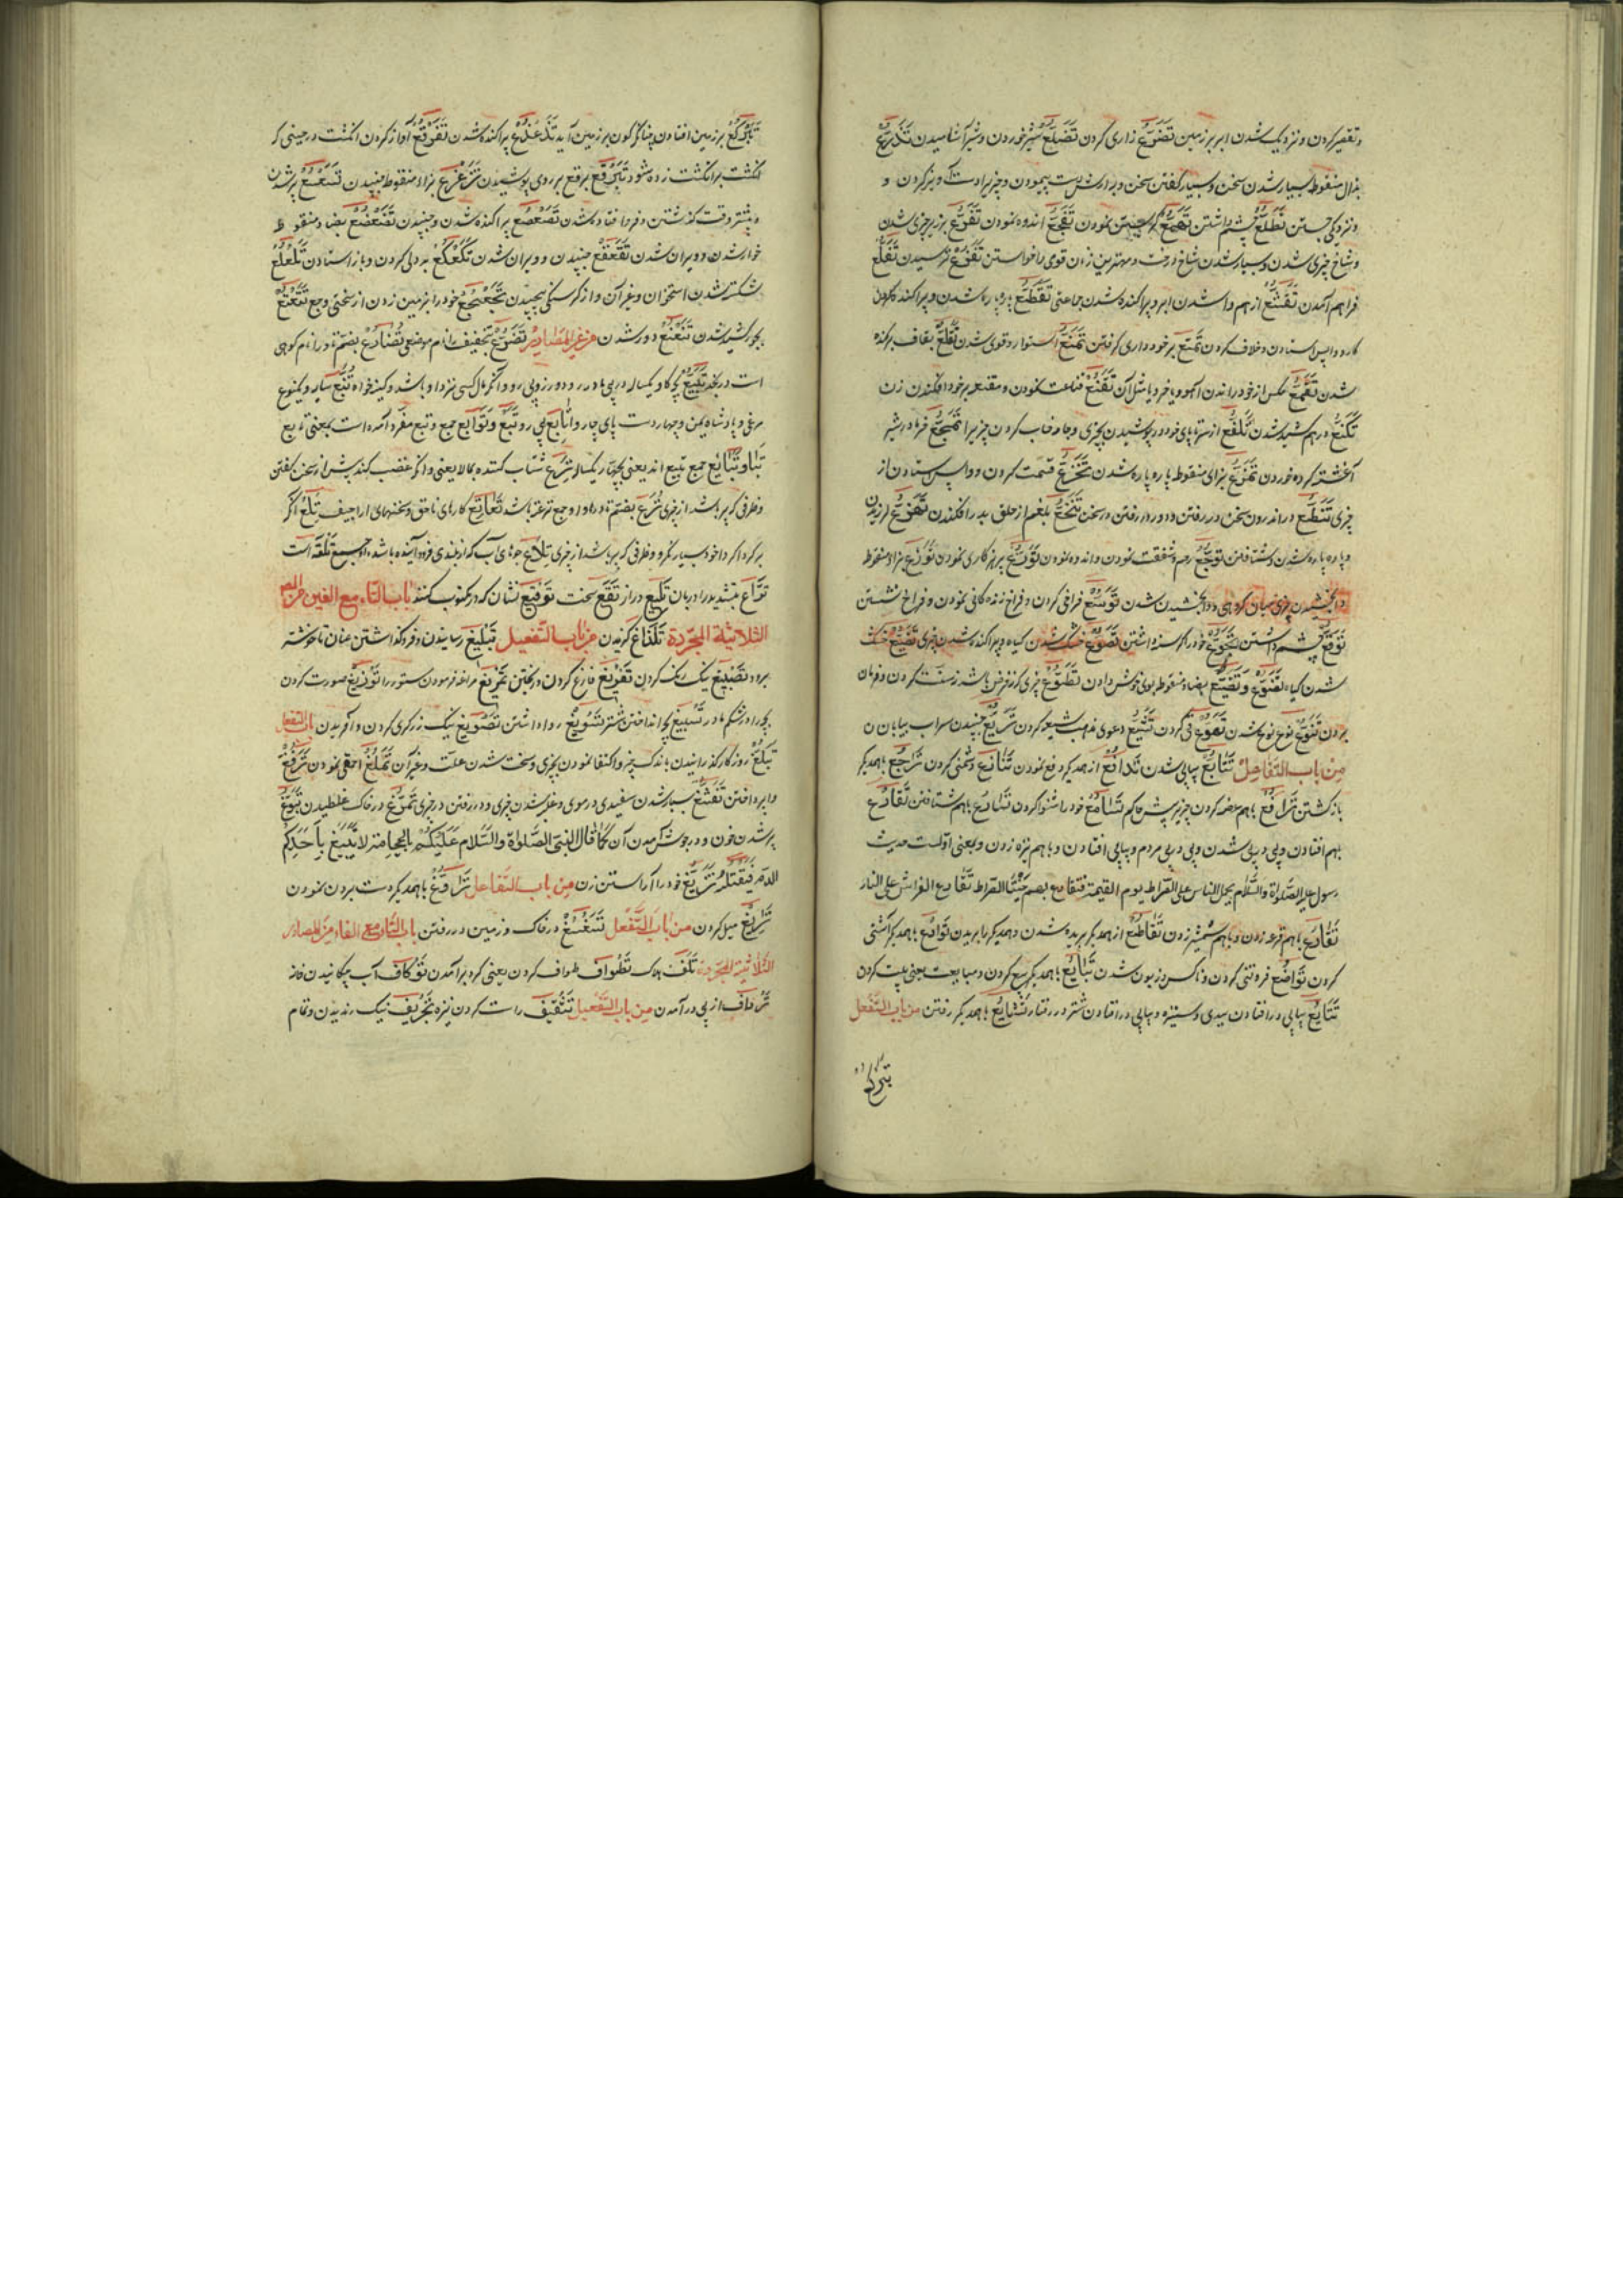 و تقصیر کردن و نزدیک شدن ابر بر زمین تضرّع زاری کردن تضلّع سیر خوردن و سیر آشامیدن تذرّع
بذال منقوطه بسیار شدن سخن و بسیار گفتن سخن و بدارش دست پیمودن و چیزیرا دست و بز کردن و
و نزدیکی جستن تطلّع چشم داشتن نمودن تفجّع اندوه نمودن تفرّع بر زبر چیزی شدن
و شاخ چیزی شدن و بسیار شدن شاخ درخت و مهترین زنان قوی را خواستن تفزّع ترسیدن تقلّع
فراهم آمدن تقشّع از هم واشدن ابر و پراکنده شدن جماعتی تقطّع پاره پاره شدن و پراکنده کردن
کار و واپس استادن و خلاف کردن تمتّع برخورداری گرفتن تمنّع استوار و قوی شدن تقلّع بقاف برکنده
شدن تقمّع مکس از خود راندن آهو و یا خر و یا مثل آن تقنّع قناعت نمودن و مقنعه بر خود افکندن زن
تکنّع درهم کشیده شدن تلفّع از سر تا پای خود در پوشیدن بچیزی و جامه خاب کردن چیزیرا تمجّع خرما در شیر
آغشته کرده خوردن تمزّع بزای منقوطه پاره پاره شدن تجزّع قسمت کردن و واپس ستادن از
چیزی تنطّع در اندرون سخن در رفتن و دور در رفتن در سخن تنخّع بلغم از حلق بدر افکندن تهزّع لرزیدن
و پاره پاره شدن و شتافتن توجّع رحم و شفقت نمودن و اندوه نمودن تورّع پرهیزکاری نمودن توزّع بزاء منقوطه
وابخشیدن چیزی میان گروهی و وابخشیدن شدن توسّع فراخی کردن و فراخ زندگانی نمودن و فراخ نشستن
توقّع چشم داشتن تجوّع خود را گرسنه داشتن تصوّع خشک شدن گیاه و پراکنده شدن چیزی تصیّع خشک
شدن گیاه تضوّع و تضیّع بضاد منقوطه بوی خوش دادن تطوّع چیزی کردن که فرض باشد و سنت کردن و فرمان
بردن تنوّع نوع نوع شدن تهوّع قی کردن تشیّع دعوی مذهب شیعه کردن تریّع جنبیدن سراب بیابان
من باب التفاعل تتابع پیاپی شدن تدافع از همدیگر دفع نمودن تنازع دشمنی کردن تراجع باهمدیگر
بازگشتن ترافع باهم رفع کردن چیز پیش حاکم تسامع خود را شنوا کردن تسارع باهم شتافتن تقادع
بهم افتادن و پی در پی شدن و پی در پی مردم و پیاپی افتادن و باهم نیزه زدن و بمعنی اولست حدیث
رسول علیه الصلوة والسلام یحمل الناس علی الصراط یوم القیمة فتقادع بهم جنبتا الصراط تقادع الفراش علی النار
تقارع باهم قرعه زدن و باهم شمشیر زدن تقاطع از همدیگر بریده شدن و همدیگر را بریدن توادع باهمدیگر آشتی
کردن تواضع فروتنی کردن و ناکس و زبون شدن تبایع باهمدیگر بیع کردن و مبایعت یعنی بیعت کردن
تتایع پیاپی در افتادن ببدی و ستیزه و پیاپی در افتادن شتر در رفتار تشایع باهمدیگر رفتن من باب التفعلل
تبرکع
تبرکع بر زمین افتادن چنانکه کون بر زمین آید تذعذع پراکنده شدن تفرقع آواز کردن انگشت در حینی که
انگشت بر انگشت زده شود تبرقع برقع بر روی پوشیدن تزعزع بزاء منقوطه جنبیدن تسعسع پیر شدن
و بیشتر وقت گذشتن و فرو افتاده شدن تصعصع پراکنده شدن و جنبیدن تضعضع بضاد منقوطه
خوار شدن و ویران شدن تقعقع جنبیدن و ویران شدن تکعکع بددلی کردن و باز استادن تلعلع
شکسته شدن استخوان و غیر آن و از گرسنگی پیچیدن تجعجع خود را بر زمین زدن از سختی وجع تتعتع
شدن تنعنع دور شدن من غیر المصادر تضوع بتخفیف را نام موضعی تضارع بضم تا و را نام کوهی
است در نجد تبیع بچه گاو یکساله در پی مادر رود و در پی رو و آنکه مال کسی نزد او باشد و کینه خواه تبّع سایه و یکنوع
مرغی و پادشاه یمن و چهار دست پای چاروا تابع پی رو تبع و توابع جمع و تبع مفرد آمده است بمعنی تابع
تباع و تبایع جمع تبیع اند یعنی بچهای یکساله ترع شتاب کننده بکالا یعنی و اگر غضب کند پیش از سخن گفتن
و ظرفی که پر باشد از چیزی ترع بضم تا و راء و او جمع ترعه باشد تعاتع کارهای ناحق و سخنهای اراجیف تلع آنکه
بگرداگرد خود بسیار نگرد و ظرفی که پر باشد از چیزی تلاع جوهای آب که از بلندی فرود آینده باشد او جمع تلعه است
توّاع بتشدید دربان تلیع دراز تقع سخت توقیع نشان که در مکتوب کنند باب التاء مع الغین من المصادر
الثلاثیة المجردة تلذاغ گزیدن من باب التفعیل تبلیغ رسانیدن و فروگذاشتن عنان تا خوشتر
برود تصبیغ نیک رنگ کردن تفریغ فارغ کردن و ریختن تمریغ مراغه فرمودن ستور را توزیغ صورت کردن
بچه را در شکم مادر تسبیغ بچه انداختن شتر تسویغ روا داشتن تصویغ نیک زرگری کردن و آفریدن باب التفعل
تبلّغ روزگار گذرانیدن باندک چیز و اکتفا نمودن بچیزی و سخت شدن علت و غیر آن تملّغ احمقی نمودن ترفّغ
تفشّغ بسیار شدن سفیدی در موی و غلبه شدن چیزی و در رفتن در چیزی تمرّغ در خاک غلطیدن تبیّغ
پر شدن خون و در جوش آمدن آن کما قال النبی الصلوة والسلام علیکم بالحجامة لا یتبیّغ باحدکم
الدم فیقتله تزیّغ خود را آراستن زن من باب التفاعل ترافغ باهمدیگر دست بردن نمودن
تزایغ میل کردن من باب التفعلل تسغسغ در خاک و زمین در رفتن باب التاء مع الفاء من المصادر
الثلاثیة المجردة تلف هلاک تطواف طواف کردن یعنی گرد برآمدن توکاف آب چکانیدن خانه
ترداف از پی درآمدن من باب التفعیل تثقیف راست کردن نیزه تجریف نیک رندیدن و تمام